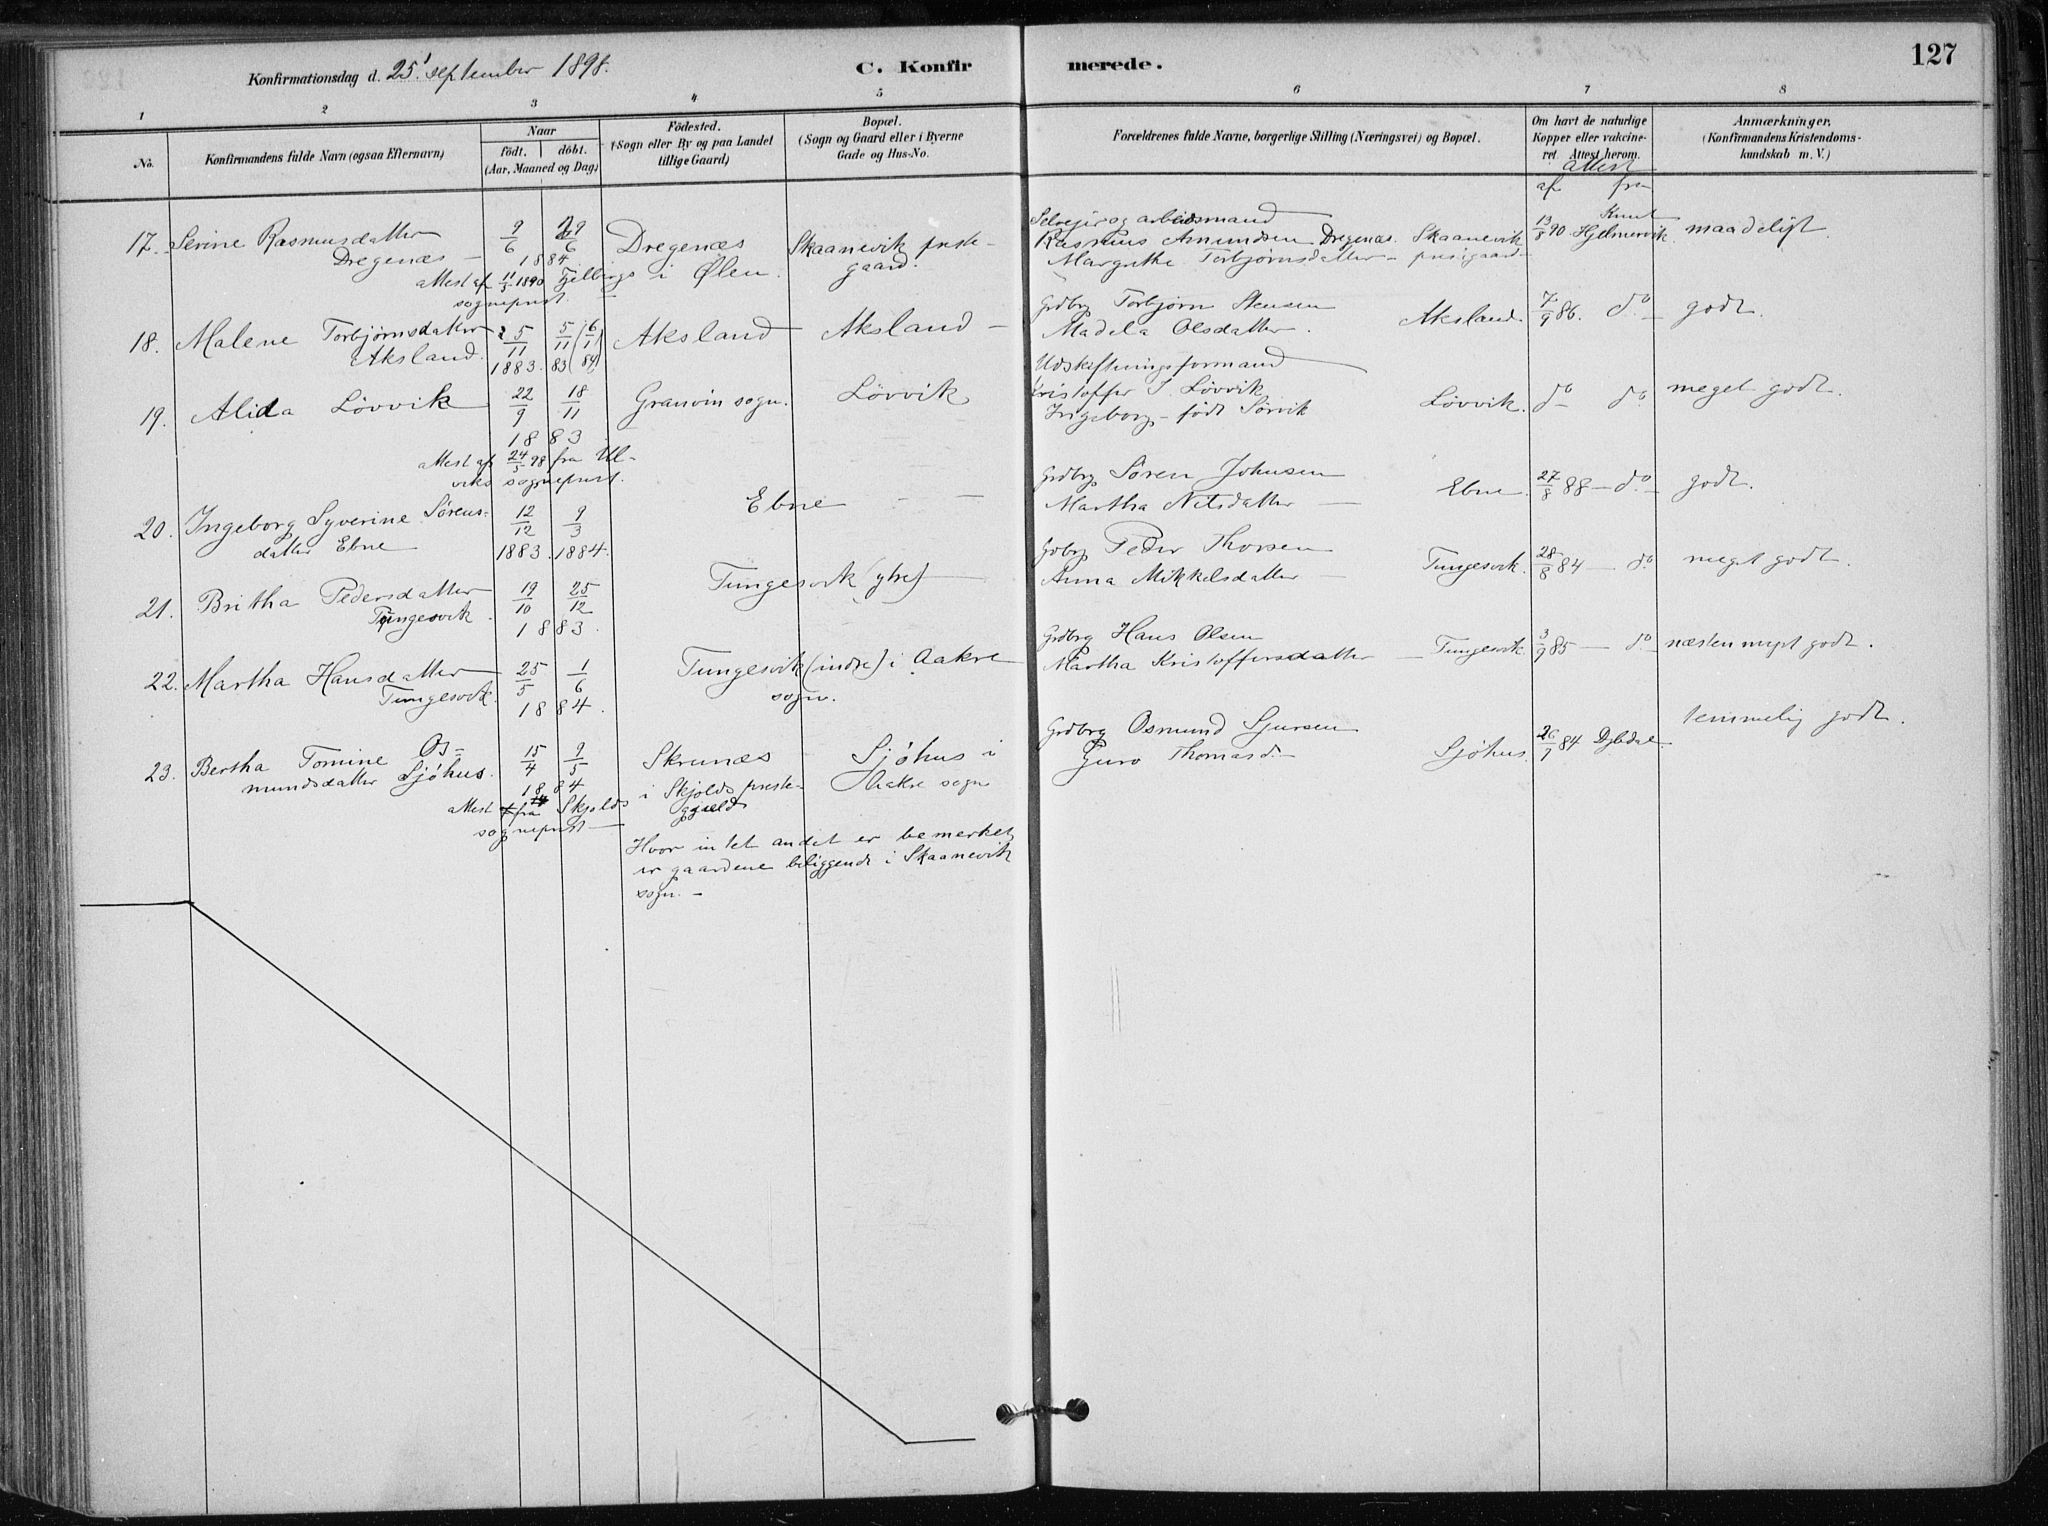 127
Konfirmationsdag d. 25' september 1898.
C. Konfir merede.
1 2 3 4 5 6 7 8
No.
Konfirmandens fulde Navn (ogsaa Efternavn)
Naar
födt. döbt.
(Aar, Maaned og Dag)
Födested.
(Sogn eller By og paa Landet
tillige Gaard)
Bopæl.
(Sogn og Gaard eller i Byerne
Gade og Hus-No.
Forældrenes fulde Navne, borgerlige Stilling (Næringsvei) og Bopæl.
Om havt de naturlige
Kopper eller vakcine-
ret. Attest herom.
Anmærkninger,
(Konfirmandens Kristendoms-
kundskab m. V.)
attest
af fra
17. Serine Rasmusdatter 9/6 29/6 Dregenæs Skaanevik preste-
Dregenæs 1884 gaard.
attest af 11/3 1890 Fjelbergs i Ølen.
sogneprest.
Selveier og arbeidsmand
Rasmus Amundsen Dregenæs. Skaanevik 13/8 90 Knut Hjelmervik maadeligt.
Margrethe Torbjørnsdatter prestgaard
18. Malene Torbjørnsdatter 5/11 5/11 (6/1) Aksland Aksland
Aksland. 1883. 83 (84)
Grdbrg Torbjørn Stensen
Madela Olsdatter. Aksland. 7/9 86. do godt.
19. Alida Lövvik 22/9 18/11 Granvin sogn. Lövvik
1883
attest af 24/5 98 fra Ul-
viks sogneprest.
Udskiftningsformand
Kristoffer J. Lövvik
Ingeborg født Sørvik Lövvik. do do meget godt.
20. Ingeborg Syverine Sørens- 12/12 9/3 Ebne
datter Ebne 1883. 1884.
Grdbrg Søren Johnsen
Martha Nilsdatter Ebne. 27/8 88 do godt.
21. Britha Pedersdatter 19/10 25/12 Tungesvik (ytre)
Tungesvik. 1883.
Grdbrg Peder Thorsen
Anna Mikkelsdatter Tungesvik. 28/8 84 do meget godt.
22. Martha Hansdatter 25/5 1/6 Tungesvik (indre) i Aakre
Tungesvik. 1884. sogn.
Grdbrg Hans Olsen
Martha Kristoffersdatter Tungesvik. 3/9 85 do næsten meget godt.
23. Bertha Tomine Os- 15/4 9/5 Skrunæs Sjöhus i
mundsdatter Sjöhus. 1884 i Skjolds preste- Aakre sogn
attest fra Skjolds gjæld
sogneprest
Grdbrg Osmund Sjursen
Guro Thomasd. Sjöhus. 26/9 84 temmelig godt.
Hvor intet andet er bemerket
er gaardene beliggende i Skaanevik
sogn.